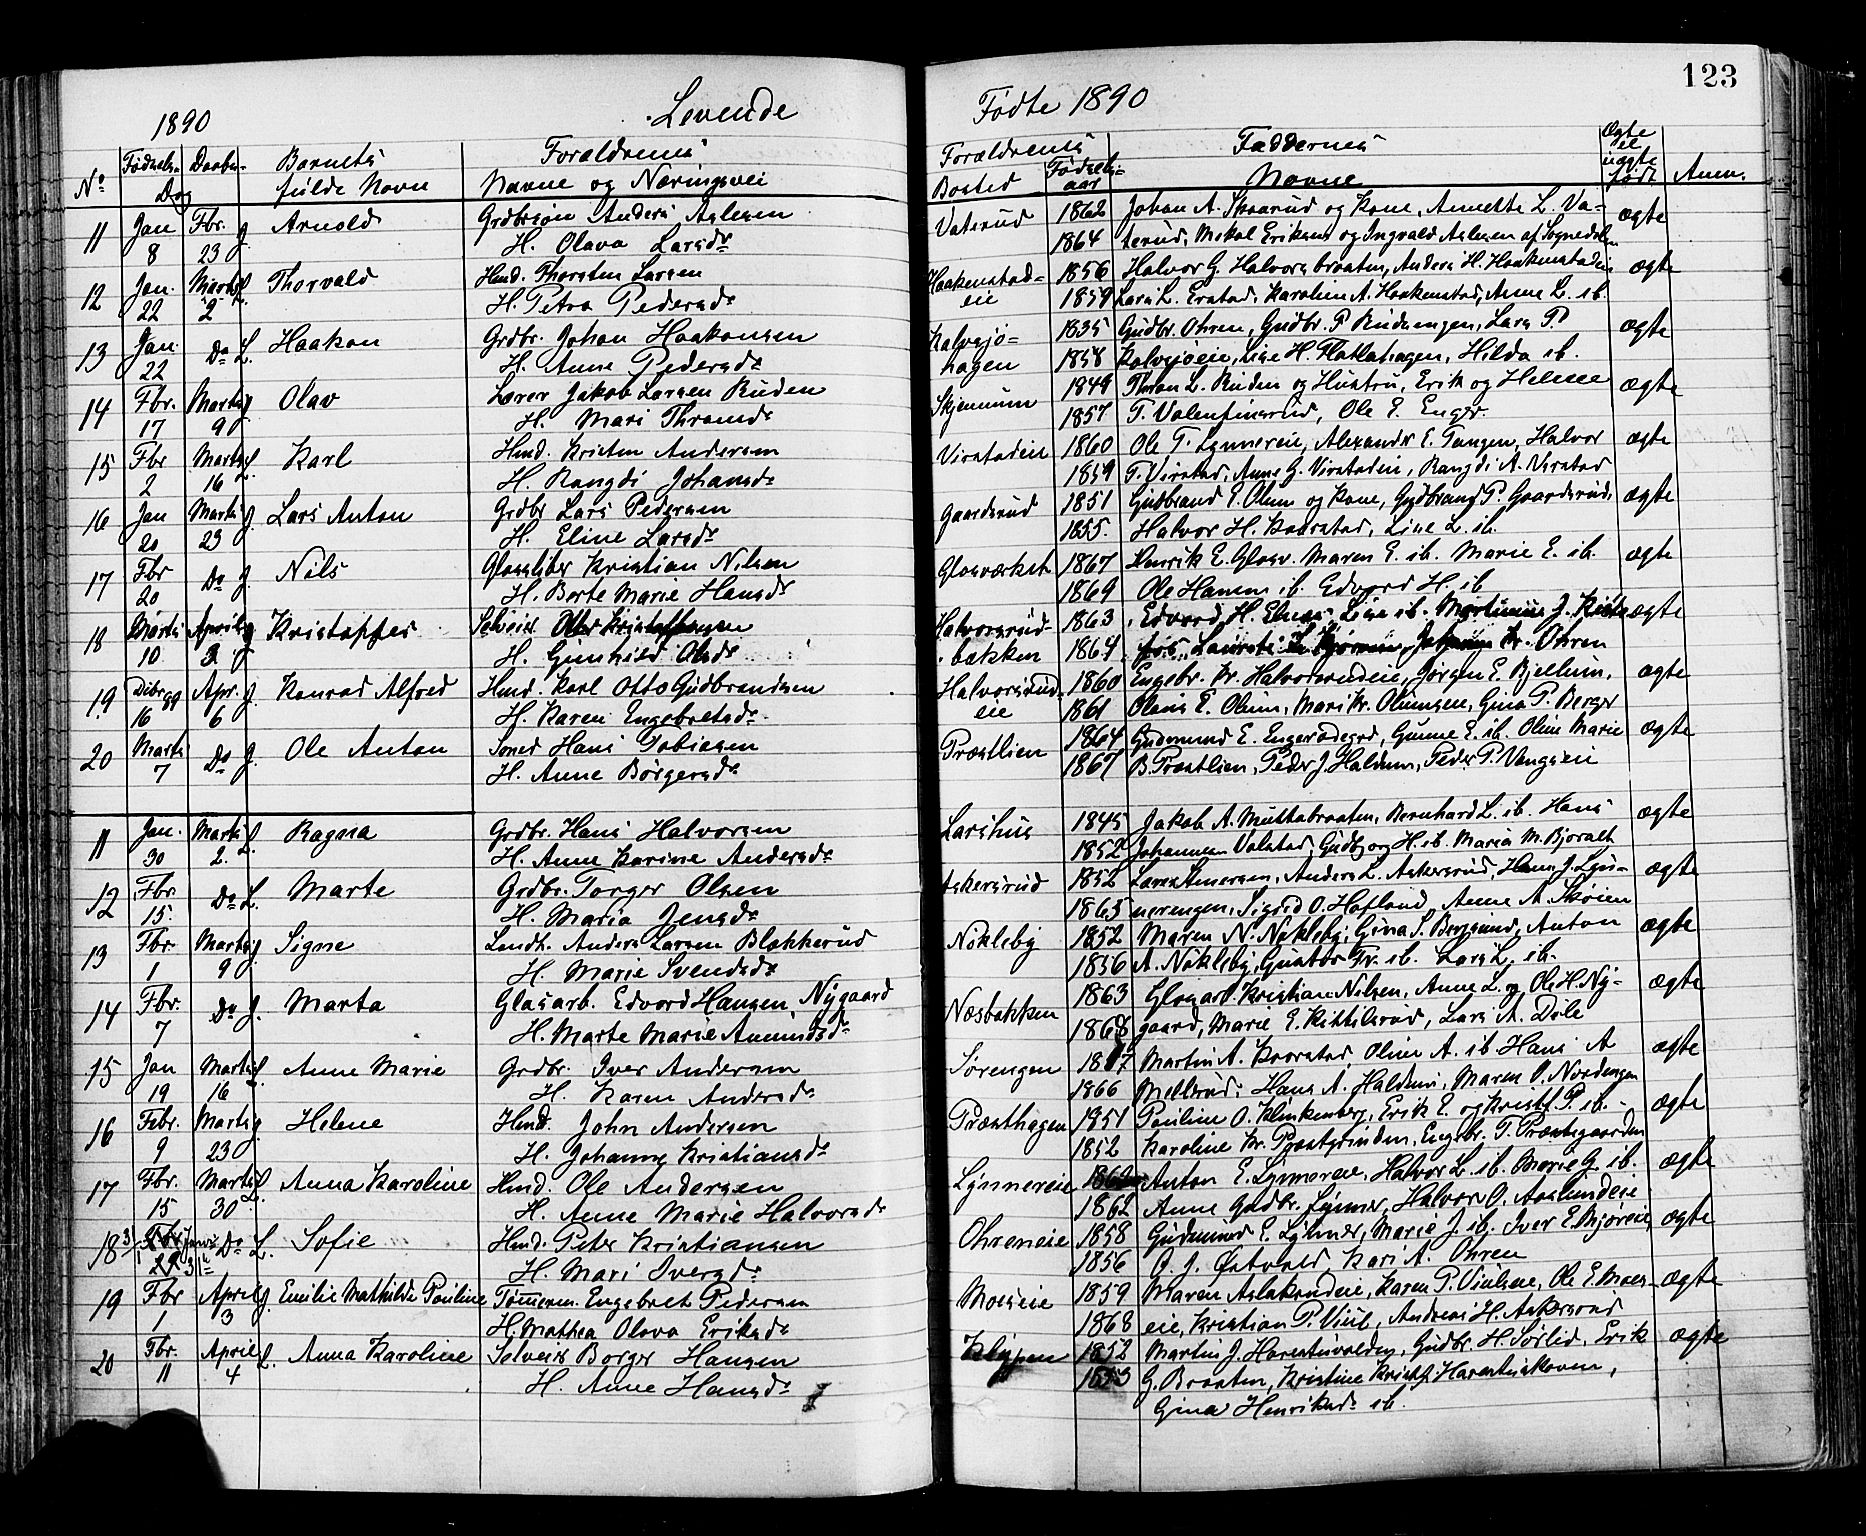 123
1890 Levende
Fødte 1890
No Fødsels- Daabs- Dag Barnets fulde Navn Forældrenes Navne og Næringsvei
Forældrenes Bosted Fødsels- aar Faddernes Navne Ægte el. uægte født Anm.
11 Jan 8 Fbr. 23 J. Arnold Grdbrsøn Anders Aslesen
H. Olava Larsdr
Vaterud 1862 Johan A. Skaarud og Kone, Annette L. Va- ægte
1864 terud, Mikal Eriksen og Ingvald Aslesen af Sognedalen
12 Jan. 22 Marts 2 L. Thorvald Hmd. Thorsten Larsen
H. Petra Pedersdr
Haakenstad- 1856 Halvor G. Halvorsbraaten, Anders H. Haakenstadeie ægte
eie 1859 Lars L. Erstad, Karoline A. Haakenstad, Anne L. ib.
13 Jan. 22 Do L. Haakon Grdbr. Johan Haakonsen
H. Anne Pedersdr
Kalvsjø- 1835 Gudbr. Ohren, Gudbr. P. Rudsengen, Lars P. ægte
hagen 1858 Kalvsjøeie, Lise H. Flatlahagen, Hilda ib.
14 Fbr. 17 Marts 9 J. Olav Lærer Jakob Larsen Ruden
H. Mari Thronsdr
Skjennum 1849 Thron L. Ruden og Hustru, Erik og Helene ægte
1857 T. Valentinsrud, Ole E. Enger
15 Fbr 2 Marts 16 L. Karl Hmd. Kristen Andersen
H. Rangdi Johansdr
Virstadeie 1860 Ole T. Lynnereie, Alexander E. Tangen, Halvor ægte
1859 T. Virstad, Anne G. Virstadeie, Rangdi A. Virstad
16 Jan 20 Marts 23 J. Lars Anton Grdbr Lars Pedersen
H. Eline Larsdr
Gaardsrud 1851 Gudbrand E. Olum og Kone, Gudbrand P. Gaardsrud, ægte
1855. Halvor H. Kaarstad, Lise L. ib.
17 Fbr 20 Do J. Nils Glassliber Kristian Nilsen
H. Berte Marie Hansdr
Glasværket 1867 Henrik E. Glasv. Maren E. ib. Marie E. ib. ægte
1869 Ole Hansen ib. Edvard H. ib
18 Marts 10 April 3 J. Kristoffer Selveier Kristoffersen
H. Gunhild Olsdr
Halvorsrud- 1863 Edvard H. Elnæs, Lise ib. Martinius J. ægte
bakken 1864 Ohren
19 Dcbr 89 16 Apr. 6 J. Konrad Alfred Hmd. Karl Otto Gudbrandsen
H. Karen Engebretsdr
Halvorsrud- 1860 Engebr. Kr. Halvorsrudeie, Jörgen E. Bjellum, ægte
eie 1861 Olaus E. Olum, Mari Kr. Olumseie, Gina P. Berger
20 Marts 7 Do J. Ole Anton Smed Hans Tobiasen
H. Anne Börgersdr
Præstlien 1864 Gudmund E. Engerødegrd, Gunne E. ib. Oline Marie ægte
1867 B. Præstlien, Peder J. Haldum, Peder P. Vangseie
11 Jan. 30 Marts 2. L. Ragna Grdbr. Hans Halvorsen
H. Anne Karine Andersdr
Larshus 1845 Jakob A. Muttabraaten, Bernhard L. ib. Hans ægte
1852 Johannesen Valstad, Gudbjør H. ib. Maria M. Bjoralt
12 Fbr. 15. Do L. Marte Grdbr. Torger Olsen
H. Maria Jensdr
Askersrud 1852 Lars Amersen, Anders L. Askersrud, Hans J. Lyn- ægte
1865 nerengen, Sigrid O. Hafland, Anne A. Skøien
13 Fbr. 1 Marts 9 J. Signe Landh. Anders Larsen Blækkerud
H. Marie Svendsdr
Nøkleby 1852 Maren N. Nøkleby, Gina S. Bergsund, Anton ægte
1856 A. Nøkleby, Gustav Fr. ib. Lars L. ib.
14 Fbr. 7 Do J. Marta Glasarb. Edvard Hansen Nygaard
H. Marte Marie Amundsdr
Næsbakken 1863 Glasarb Kristian Nilsen, Anne L. og Ole H. Ny- ægte
1868 gaard, Marie E. Kittilsrud, Lars A. Døle
15 Jan 19 Marts 16 L. Anne Marie Grdbr. Iver Andersen
H. Karen Andersdr
Sørengen Martin A. Kaarstad, Oline A. ib Hans A ægte
1866 Mellerud, Hans A. Haldum, Maren O. Nordengen
16 Febr. 9 Marts 23 J. Helene Hmd. John Andersen
H. Johanne Kristiansdr
Præsthagen 1851 Pauline O. Klinkenberg, Erik E. og Kristf. P. ib. ægte
1852 Karoline Kr. Præstgrinden, Engebr. T. Præstegaarden
17 Fbr. 15 Marts 30 L. Anna Karoline Hmd. Ole Andersen
H. Anne Marie Halvorsdr
Lynnereie Anton E. Lynnereie, Halvor L. ib. Marie G. ib. ægte
1862 Anne Gudbr. Lynner, Halvor O. Aaslundeie
18 Do L. Sofie Hmd. Peter Kristiansen
H. Mari Iversdr
Ohreneie 1858 Gudmund E. Lynner, Marie J. ib. Iver E. Mjøreie ægte
1856 O. J. Østvold, Kari A. Ohren
19 Fbr 1 April 3 J. Emilie Mathilde Pauline Tømmerm. Engebret Pedersen
H. Mathea Olava Eriksdr
Moeseie 1859 Maren Aslaksrudeie, Karen P. Viubeie, Ole E. Moes- ægte
1868 eie, Kristian P. Viub, Andreas H. Askersrud
20 Fbr. 11 April 4 L. Anna Karoline Selveier Borger Hansen
H. Anne Hansdr
Klypen 1852 Martin J. Harestuvolden, Gudbr. H. Sørlid, Erik ægte
1853 G. Braaten, Kristine Kristf. Harestuskoven,
Gina Henriksdr ib.